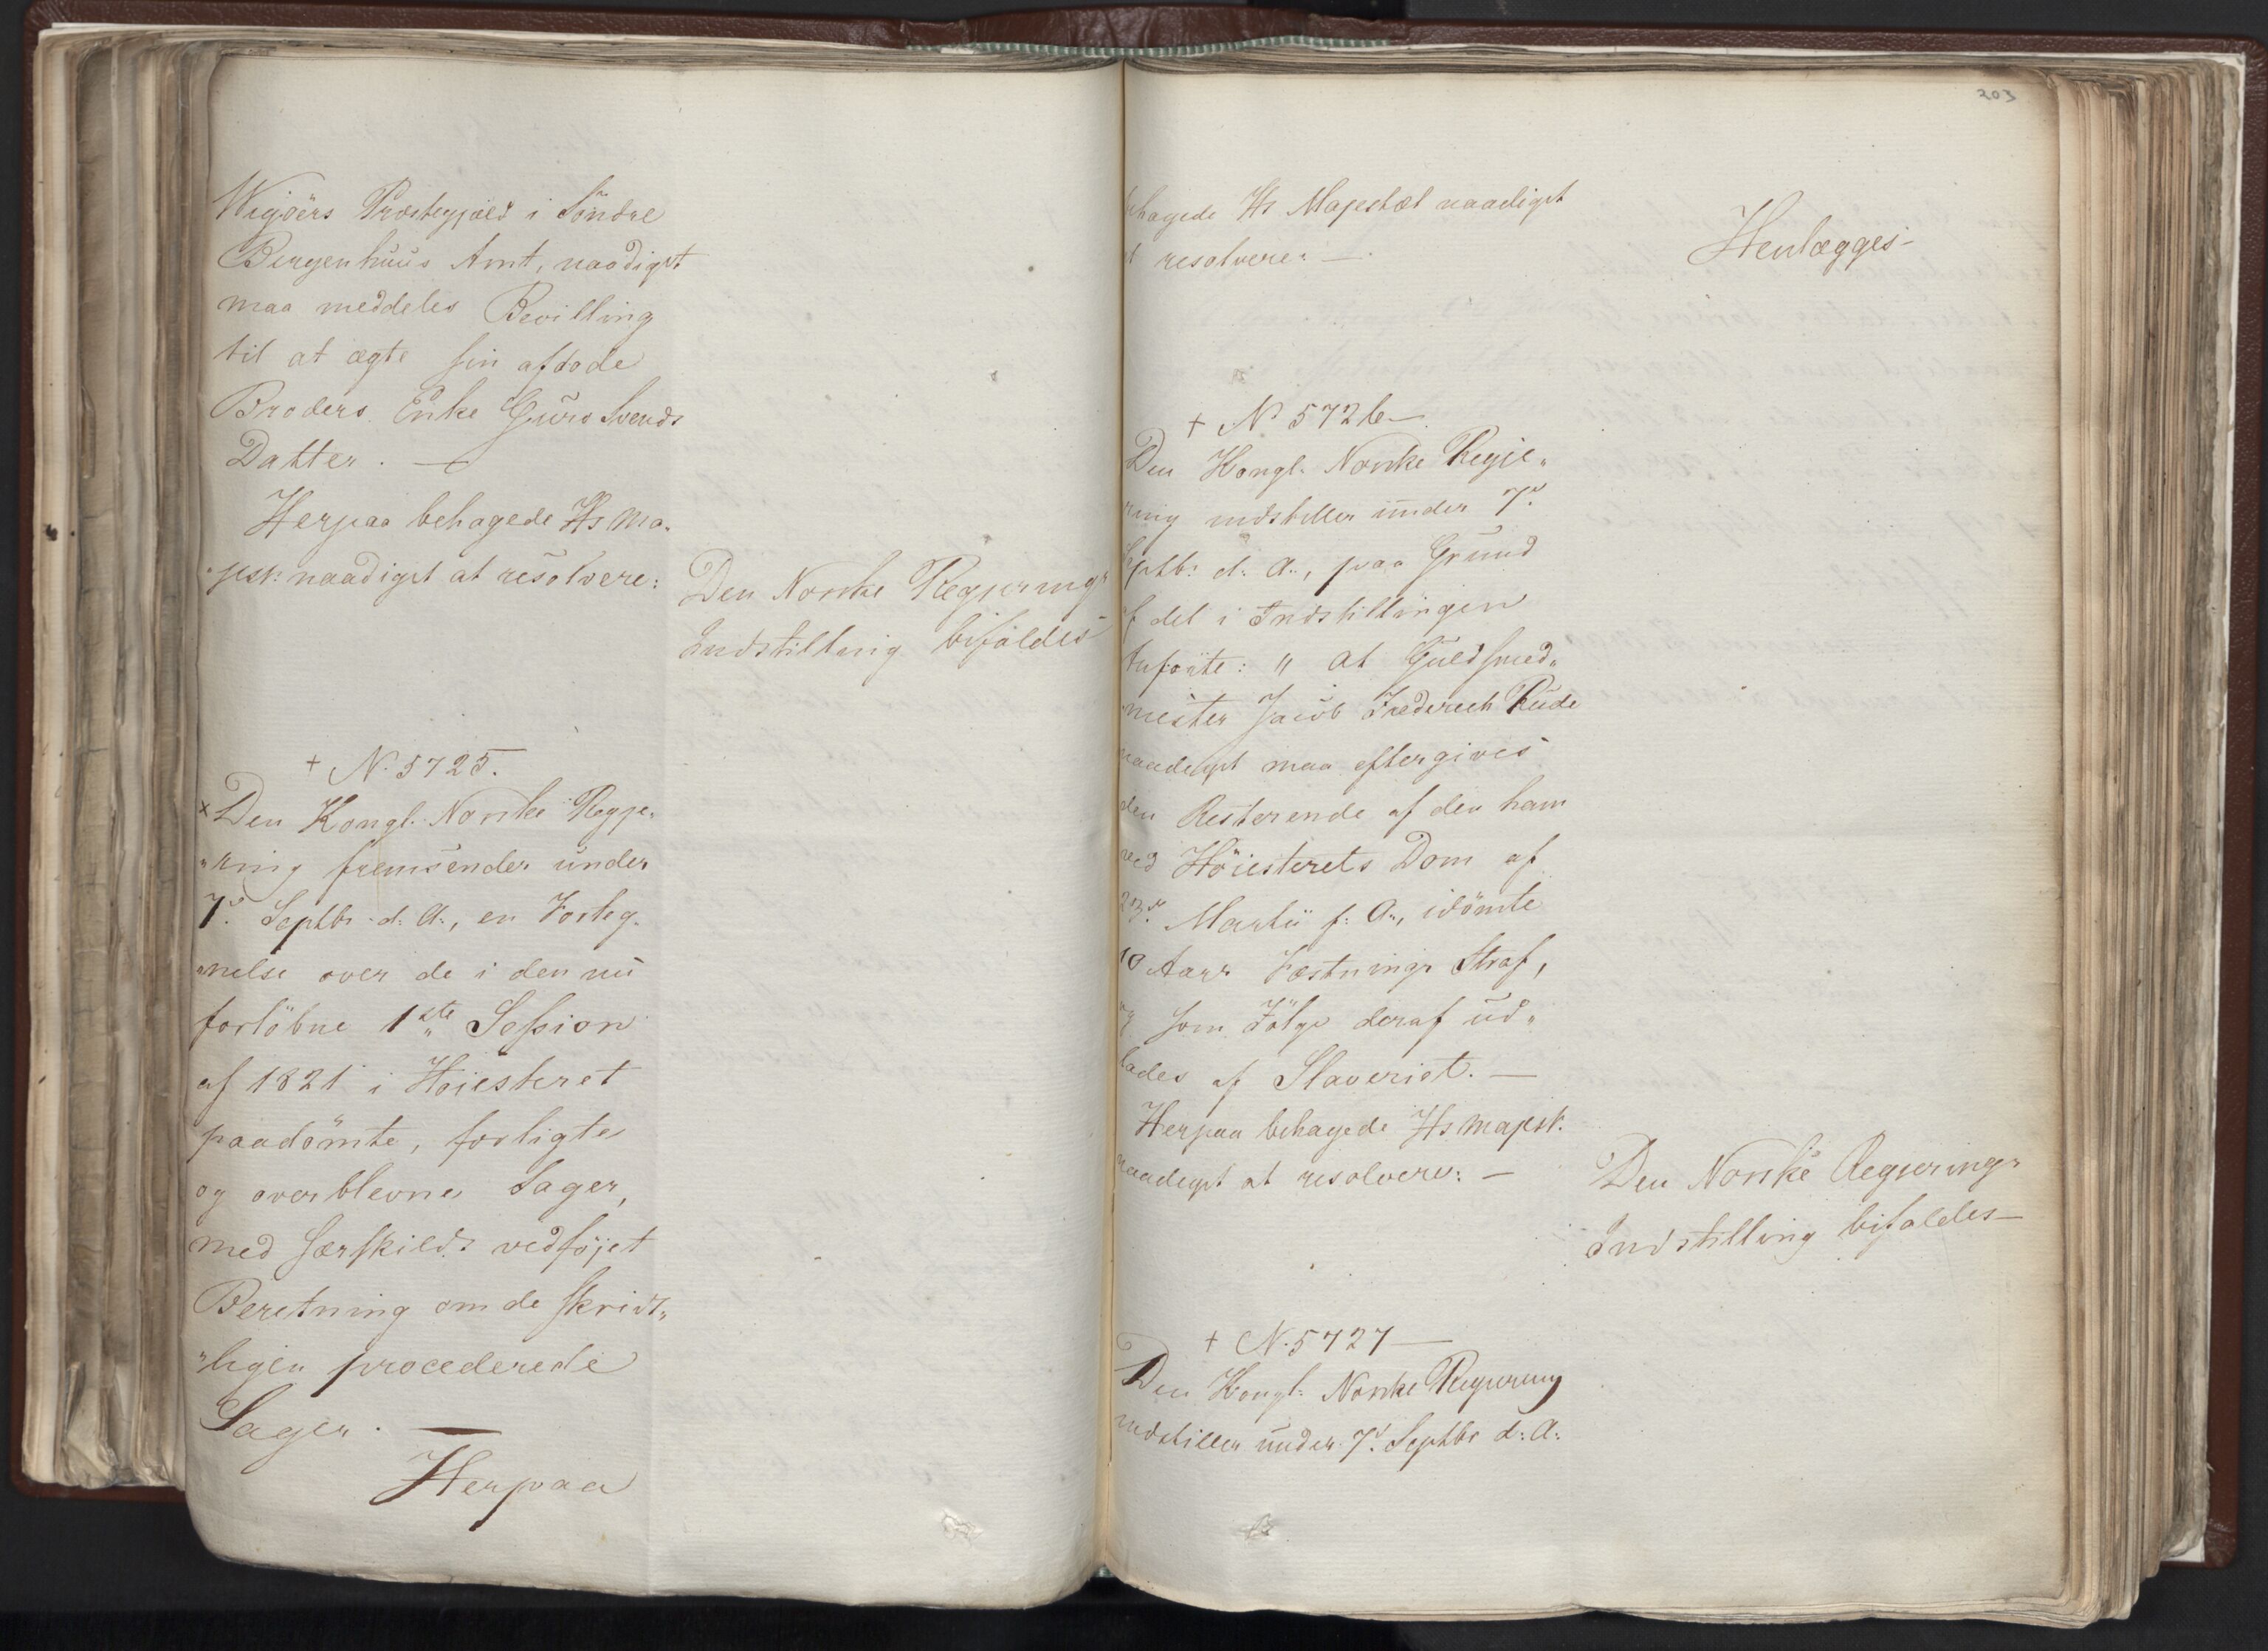 Wigörs Præstegjæld i Söndre
Bergenhuus Amt, naadigst
maa meddeles Bevilling
til at ægte sin afdöde
Broders Enke Guro Svends
Datter. —
Herpaa behagede Hs Ma„
„jest: naadigst at resolvere:
Den Norske Regjerings
Indstilling bifaldes
+ No 5725.
× Den Kongl. Norske Regje„
„ring fremsender under
7de Septbr d: A:, en Forteg„
„nelse over de i den nu
forlöbne 1ste Session
af 1821 i Höiesteret
paadömte, forligte
og overblevne Sager,
med særskildt vedföjet
Beretning om de skrivt„
„ligen procederede
Sager. —
Herpaa
203
behagede Hs Majestæt naadigst
at resolvere: —
Henlægges —
+ No 5726 —
Den Kongl. Norske Regje„
„ring indstiller under 7de
Septbr d: A:, paa Grund
af det i Indstillingen
Anförte: „ at Guldsmed„
„mester Jacob Frederich Rude
naadigst maa eftergives
den Resterende af den ham
ved Höiesterets Dom af
23de Martii f: A:, idömte
10 Aars Fæstnings Straf,
og som Fölge deraf ud„
lades af Slaveriet. —
Herpaa behagede Hs Majest.
naadigst at resolvere: —
Den Norske Regjerings
Indstilling bifaldes —
+ No 5727 —
Den Kongl: Norske Regjering
indstiller under 7de Septbr d: A: